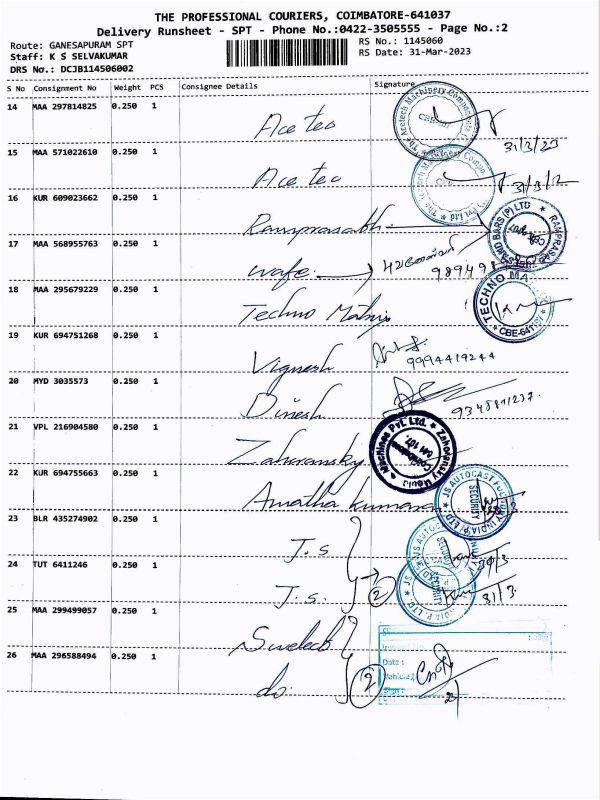 THE PROFESSIONAL COURIERS, COIMBATORE-641037
Delivery Runsheet - SPT - Phone No.:0422-3505555 - Page No.:2
Route: GANESAPURAM SPT
Staff: K S SELVAKUMAR
DRS No.: DCJB114506002
RS No.: 1145060
RS Date: 31-Mar-2023
S No Consignment No Weight PCS Consignee Details Signature
14 MAA 297814825 0.250 1 Ace tec
31/3/23
15 MAA 571022610 0.250 1 Ace tec
16 KUR 609023662 0.250 1
17 MAA 568955763 0.250 1 wafe
18 MAA 295679229 0.250 1 Techno
TECHNO
CBE-641
19 KUR 694751268 0.250 1 Vignesh 9994419244
20 MYD 3035573 0.250 1 Dinesh
21 VPL 216904580 0.250 1 Zahoransky
Machines Pvt. Ltd. Zahoransky Moulds
Coimbatore
641 107.
22 KUR 694755663 0.250 1 Amutha kumaran
JS AUTOCAST
INDIA(P) LTD
SECURITY
23 BLR 435274902 0.250 1 J.S
24 TUT 6411246 0.250 1 J.S. 2
31/3
25 MAA 299499057 0.250 1
26 MAA 296588494 0.250 1 do. 2
Date :
Vehicle
Sign :